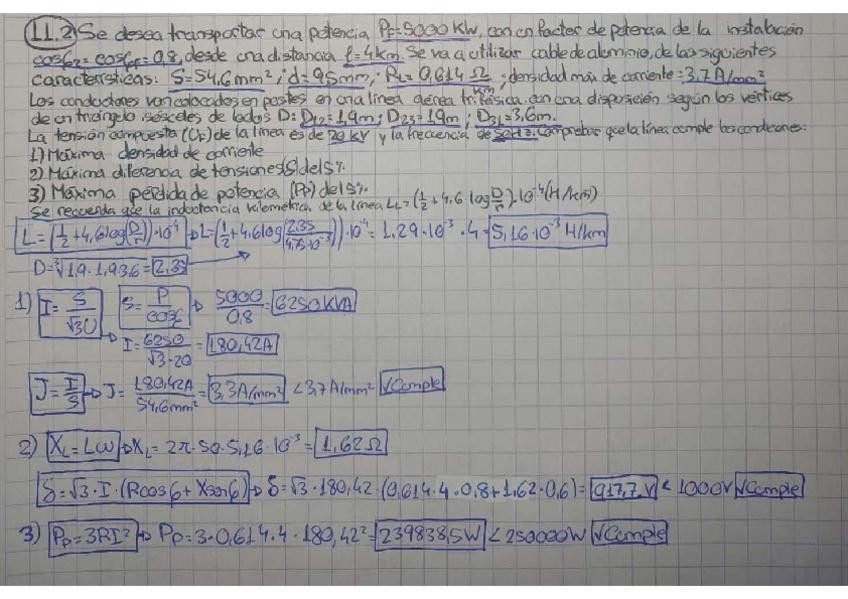 11.2) Se desea transportar una potencia Pf=5000 KW, con un factor de potencia de la instalación
cosφ2=cosφf=0,8, desde una distancia l=4km. Se va a utilizar cable de aluminio, de las siguientes
características: S=54,6mm²; d=9,5mm; RL=0,614 Ω/km; densidad máx de corriente=3.7 A/mm²
Los conductores van colocados en postes en una línea aérea trifásica con una disposición según los vértices
de un triángulo isósceles de lados D: D12=1,9m; D23=1,9m; D31=3,6m.
La tensión compuesta (Uf) de la línea es de 20 kV y la frecuencia de 50Hz. Comprobar que la línea cumple las condiciones:
1) Máxima densidad de corriente
2) Máxima diferencia de tensiones(δ) del 5%
3) Máxima pérdida de potencia (Pp) del 5%
Se recuerda que la inductancia kilométrica de la línea LL=(1/2+4,6·log D/r)·10⁻⁴(H/km)
L=(1/2+4,6log(D/r))·10⁻⁴ → L=(1/2+4,6log(2,35/4,75·10⁻³))·10⁻⁴=1,29·10⁻³·4=5,16·10⁻³ H/km
D=∛1,9·1,9·3,6=2,35
1) I=S/√3U S=P/cosφ → 5000/0,8=6250KVA
→ I=6250/√3·20=180,42A
J=I/S → J=180,42A/54,6mm²=3,3A/mm² <3,7A/mm² √Cumple
2) XL=Lω → XL=2π·50·5,16·10⁻³=1,62Ω
δ=√3·I·(Rcosφ+Xsenφ) → δ=√3·180,42·(0,614·4·0,8+1,62·0,6)=917,7V < 1000V √Cumple
3) Pp=3RI² → Pp=3·0,614·4·180,42²=239838,5W <250000W √Cumple